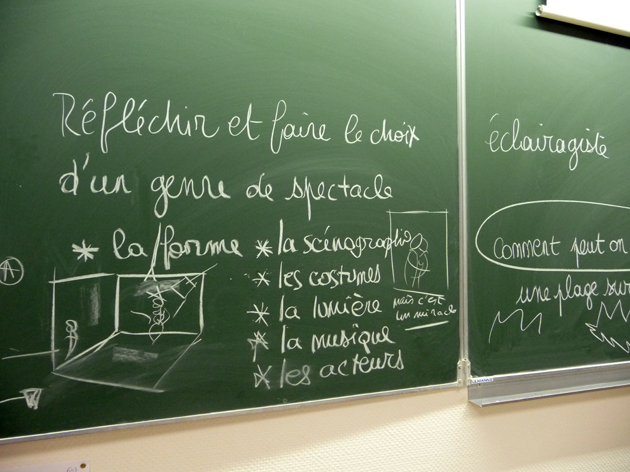 Réfléchir et faire le choix
d'un genre de spectacle
* la forme
* la scénographie
* les costumes
* la lumière
* la musique
* les acteurs
mais c'est
un miracle
A
éclairagiste
Comment peut on
une plage sur